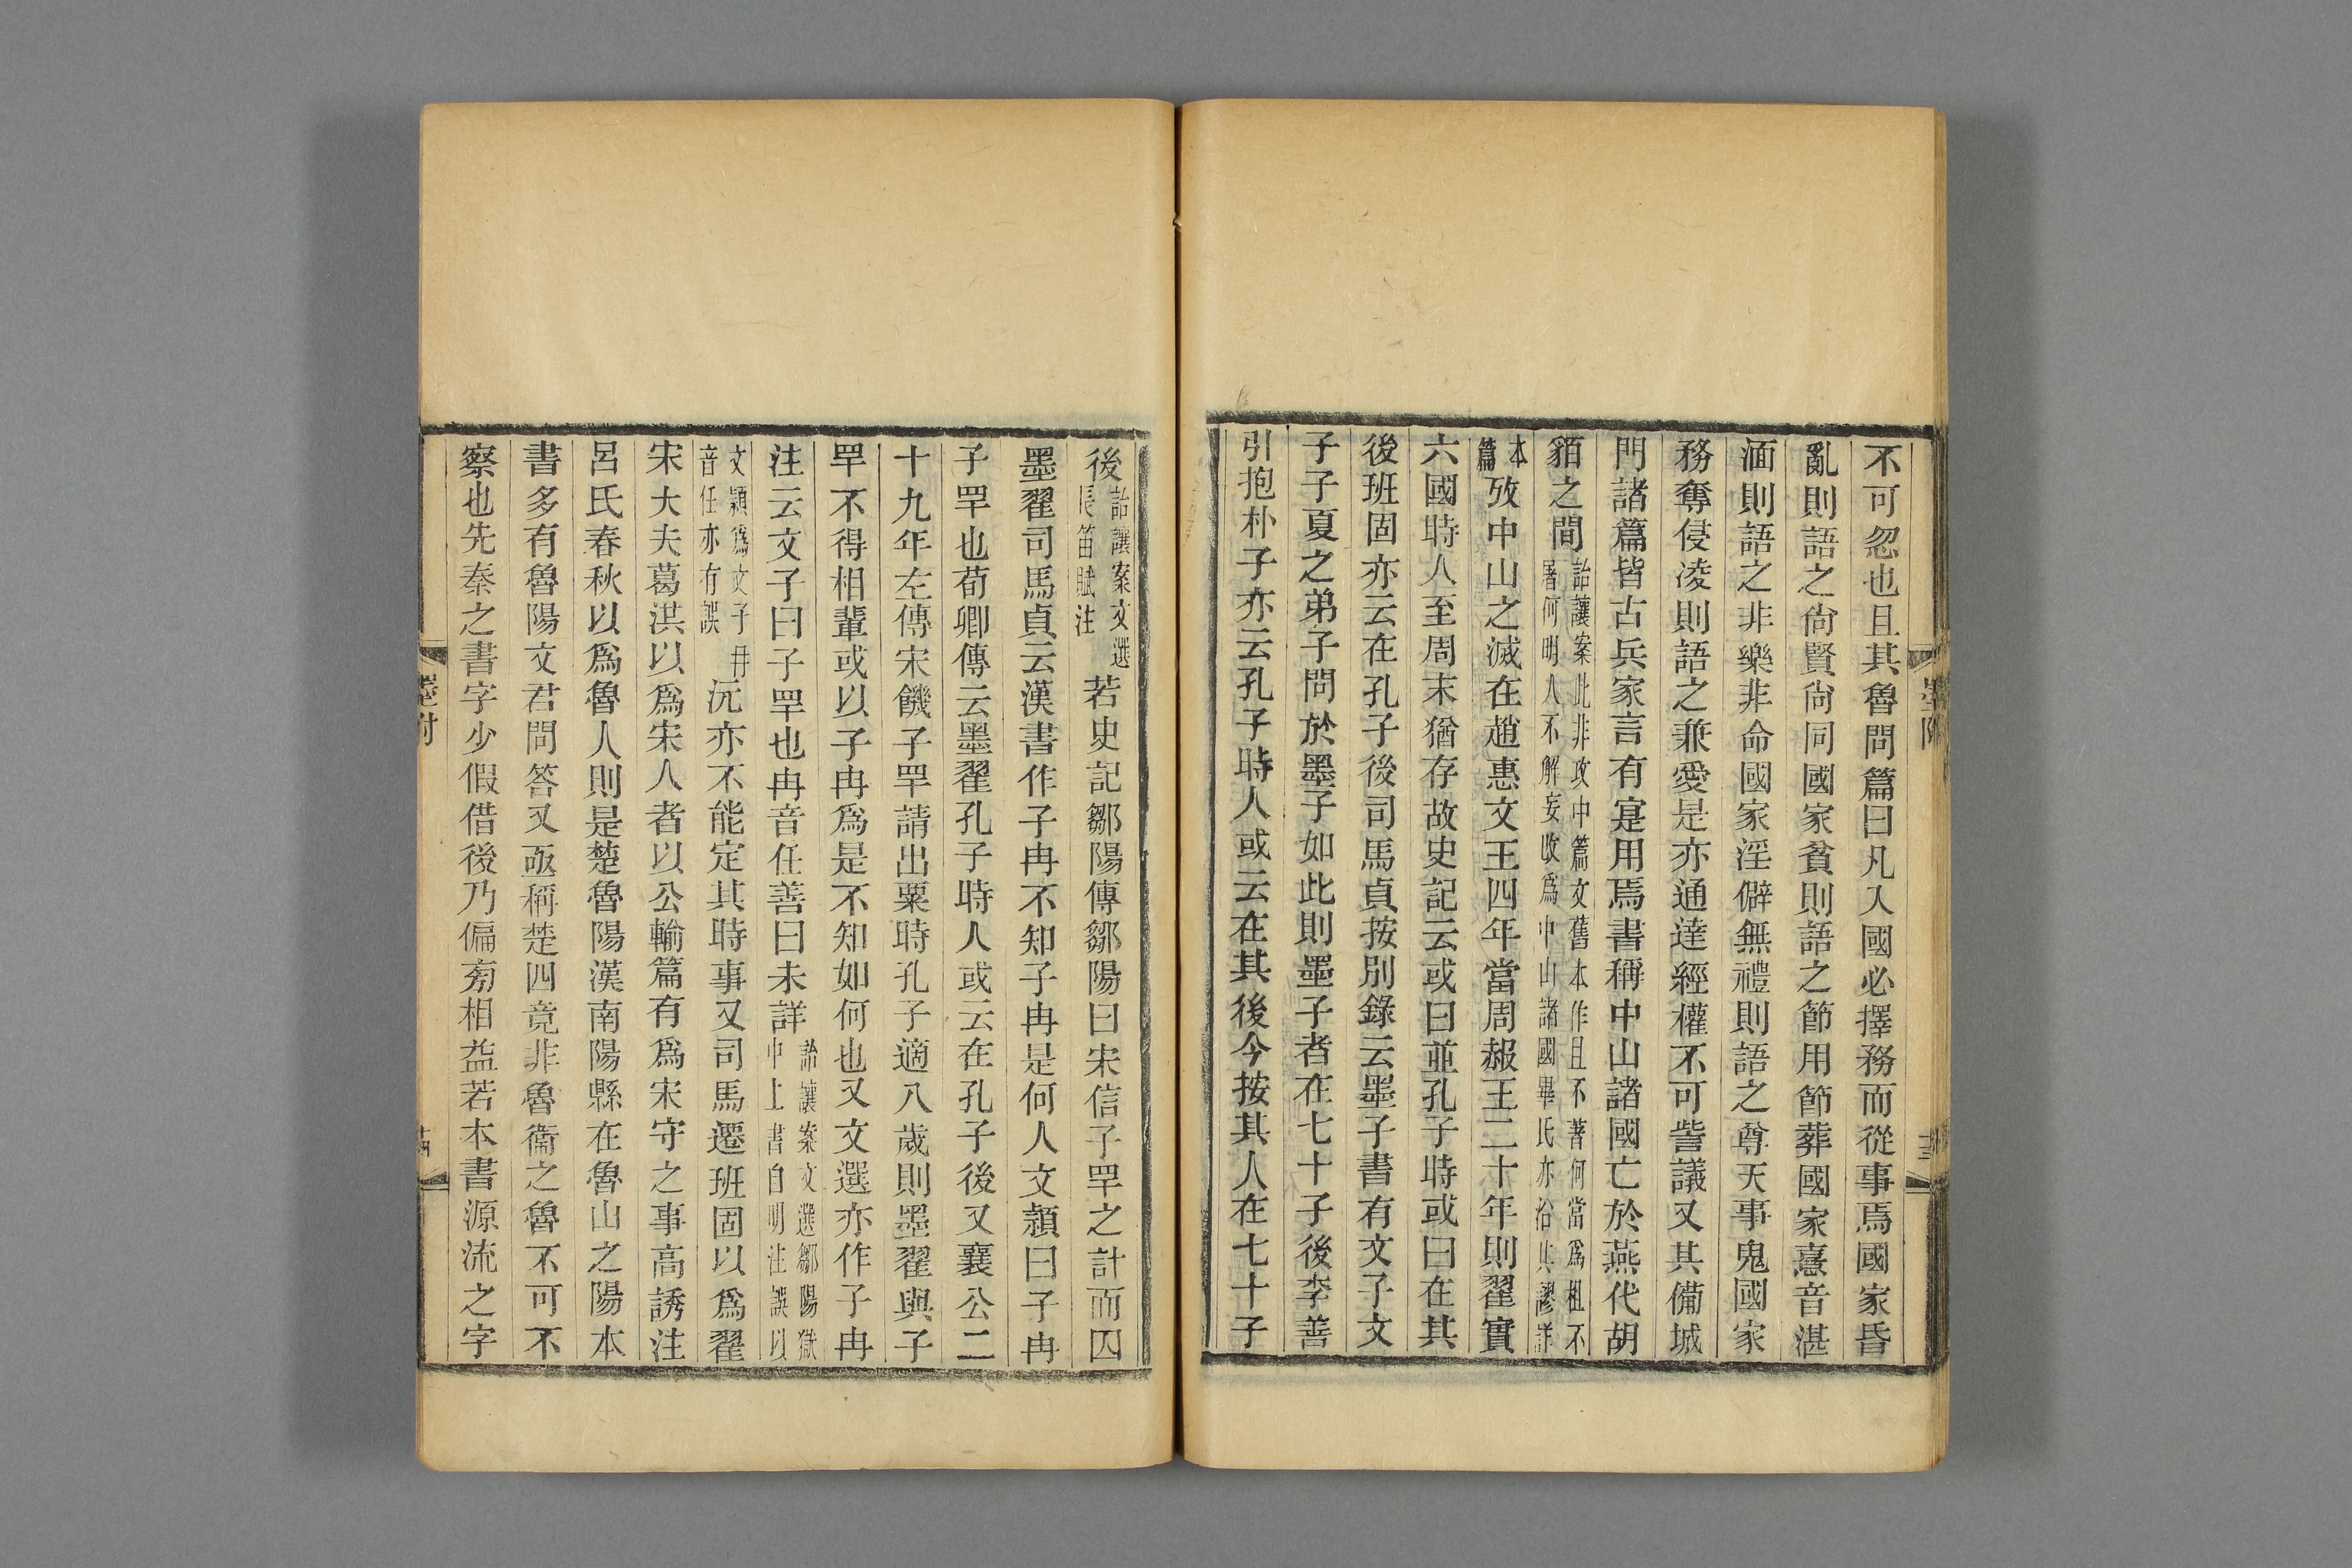 不可忽也且其魯問篇曰凡入國必擇務而從事焉國家昏
亂則語之尙賢尙同國家貧則語之節用節葬國家憙音湛
湎則語之非樂非命國家淫僻無禮則語之尊天事鬼國家
務奪侵凌則語之兼愛是亦通達經權不可訾議又其備城
門諸篇皆古兵家言有寔用焉書稱中山諸國亡於燕代胡
貊之間詒讓案此非攻中篇文舊本作且不著何當爲柤不
屠何明人不解妄改爲中山諸國畢氏亦沿其謬詳
本篇攷中山之滅在趙惠文王四年當周赧王二十年則翟實
六國時人至周末猶存故史記云或曰並孔子時或曰在其
後班固亦云在孔子後司馬貞按別錄云墨子書有文子文
子子夏之弟子問於墨子如此則墨子者在七十子後李善
引抱朴子亦云孔子時人或云在其後今按其人在七十子
後詒讓案文選長笛賦注若史記鄒陽傳鄒陽曰宋信子罕之計而囚
墨翟司馬貞云漢書作子冉不知子冉是何人文穎曰子冉
子罕也荀卿傳云墨翟孔子時人或云在孔子後又襄公二
十九年左傳宋饑子罕請出粟時孔子適八歲則墨翟與子
罕不得相輩或以子冉爲是不知如何也又文選亦作子冉
注云文子曰子罕也冉音任善曰未詳詒讓案文選鄒陽獄
中上書自明注誤以
文穎爲文子冉
音任亦有誤沅亦不能定其時事又司馬遷班固以爲翟
宋大夫葛洪以爲宋人者以公輸篇有爲宋守之事高誘注
呂氏春秋以爲魯人則是楚魯陽漢南陽縣在魯山之陽本
書多有魯陽文君問答又亟稱楚四竟非魯衞之魯不可不
察也先秦之書字少假借後乃偏旁相益若本書源流之字